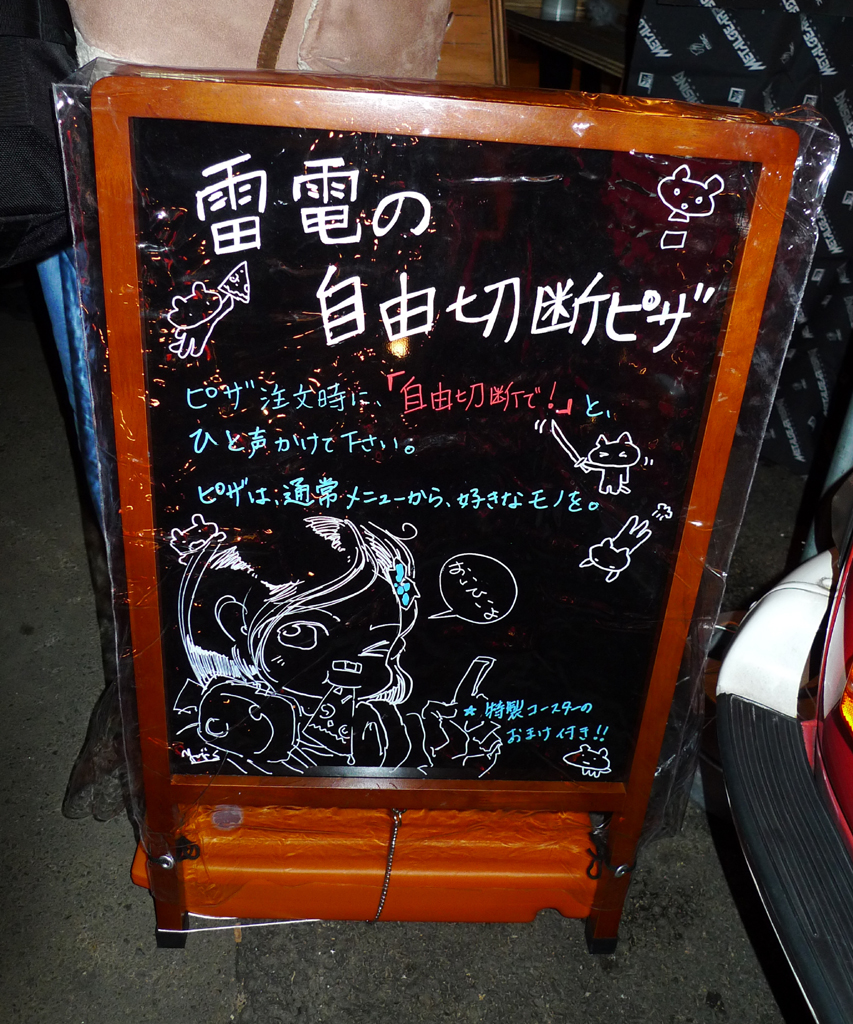 雷電の
自由切断ピザ
ピザ注文時に、「自由切断で!」と、
ひと声かけて下さい。
ピザは、通常メニューから、好きなモノを。
おいひぃよ
★特製コースターの
おまけ付き!!
METAL GEAR RISING